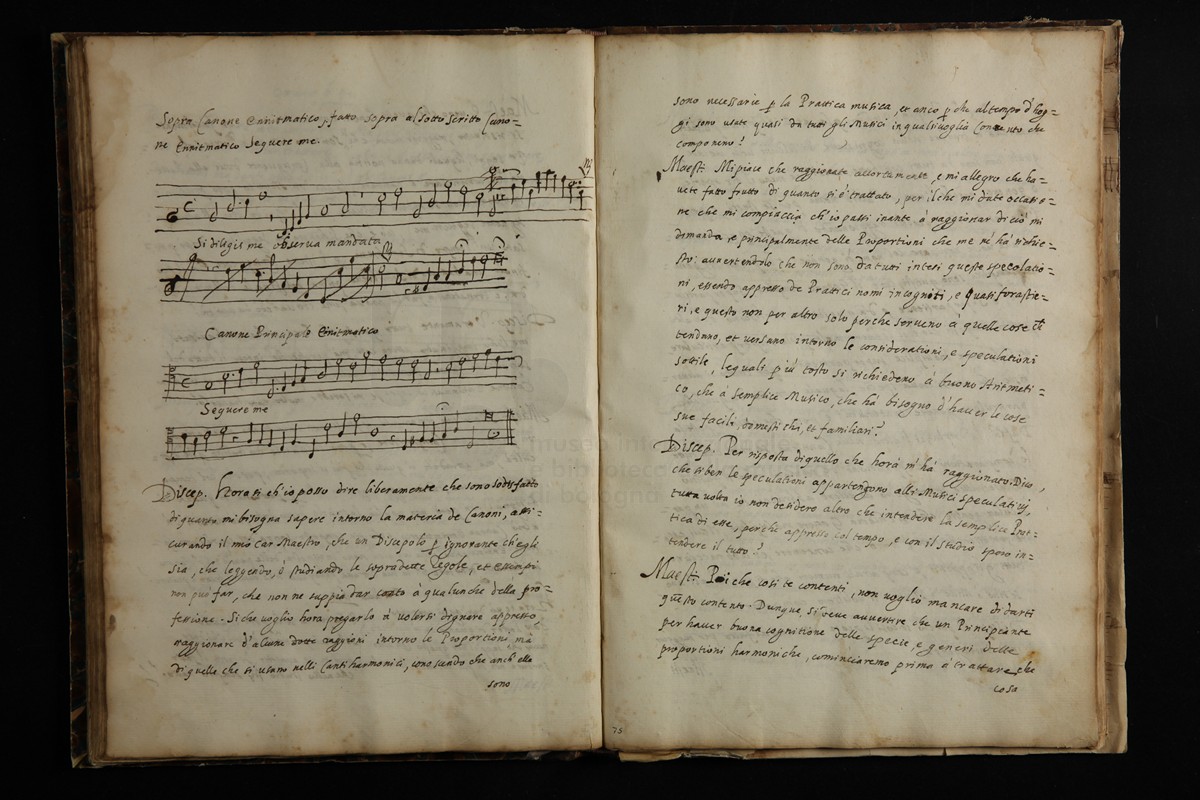 Sopra Canone Ennitmatico, fatto sopra al sotto scritto Cano=
ne Ennitmatico Seguere me.
Si diligis me observa mandata
Canone Principale Ennitmatico
Seguere me
Discep. Hora sì ch'io posso dire liberamente che sono sodisfatto
di quanto mi bisogna sapere intorno la materia de Canoni, assi=
curando il mio Car Maestro, che un Discepolo p ignorante ch'egli
sia, che leggendo, ò studiando le sopradette regole, et essempi
non può far, che non ne sappia dar conto à qualunche della pro=
fessione. Si che voglio hora pregarlo à volersi degnare appresso,
raggionare d'alcune dotte raggioni intorno le Proportioni, mà
di quelle che si usano nelli Canti harmonici, conoscendo che anch'elle
sono
sono necessarie p la Prattica musica, et anco p che al tempo d'hog=
gi sono usate quasi da tutti gli Musici in qualsivoglia Concento che
componeno?
Maest. Mi piace che raggionate accortamente, e mi allegro che ha=
vete fatto frutto di quanto si è trattato, per ilche mi date occasio=
ne che mi compiaccia ch'io passi inante à raggionar di ciò mi
dimanda, e principalmente delle Proportioni che me n'hà richie=
sto; auuertendolo che non sono da tutti intesi queste specolatio=
ni, essendo appresso de Prattici nomi incogniti, e quasi forastie=
ri, e questo non per altro solo perche serveno à quelle cose ch
tendano, et versano intorno le considerationi, e speculationi
sottile, lequali più tosto si richiedeno à buono Aritmeti=
co, che à semplice Musico, che hà bisogno d'haver le cose
sue facili, domestichi, et familiari?
Discep. Per risposta di quello che hora m'hà raggionato. Dico,
che siben le speculationi appartengono alli Musici speculativi,
tutta volta io non desidero altro che intendere la semplice Prat=
tica di esse, perche appresso col tempo, e con il studio spero in=
tendere il tutto?
Maest. Poi che cosi te contenti, non voglio mancare di darti
questo contento. Dunque si deve auuertire che un Principiante
per haver buona cognitione delle specie, e generi delle
proportioni harmoniche, cominciaremo prima à trattare che
cosa
75